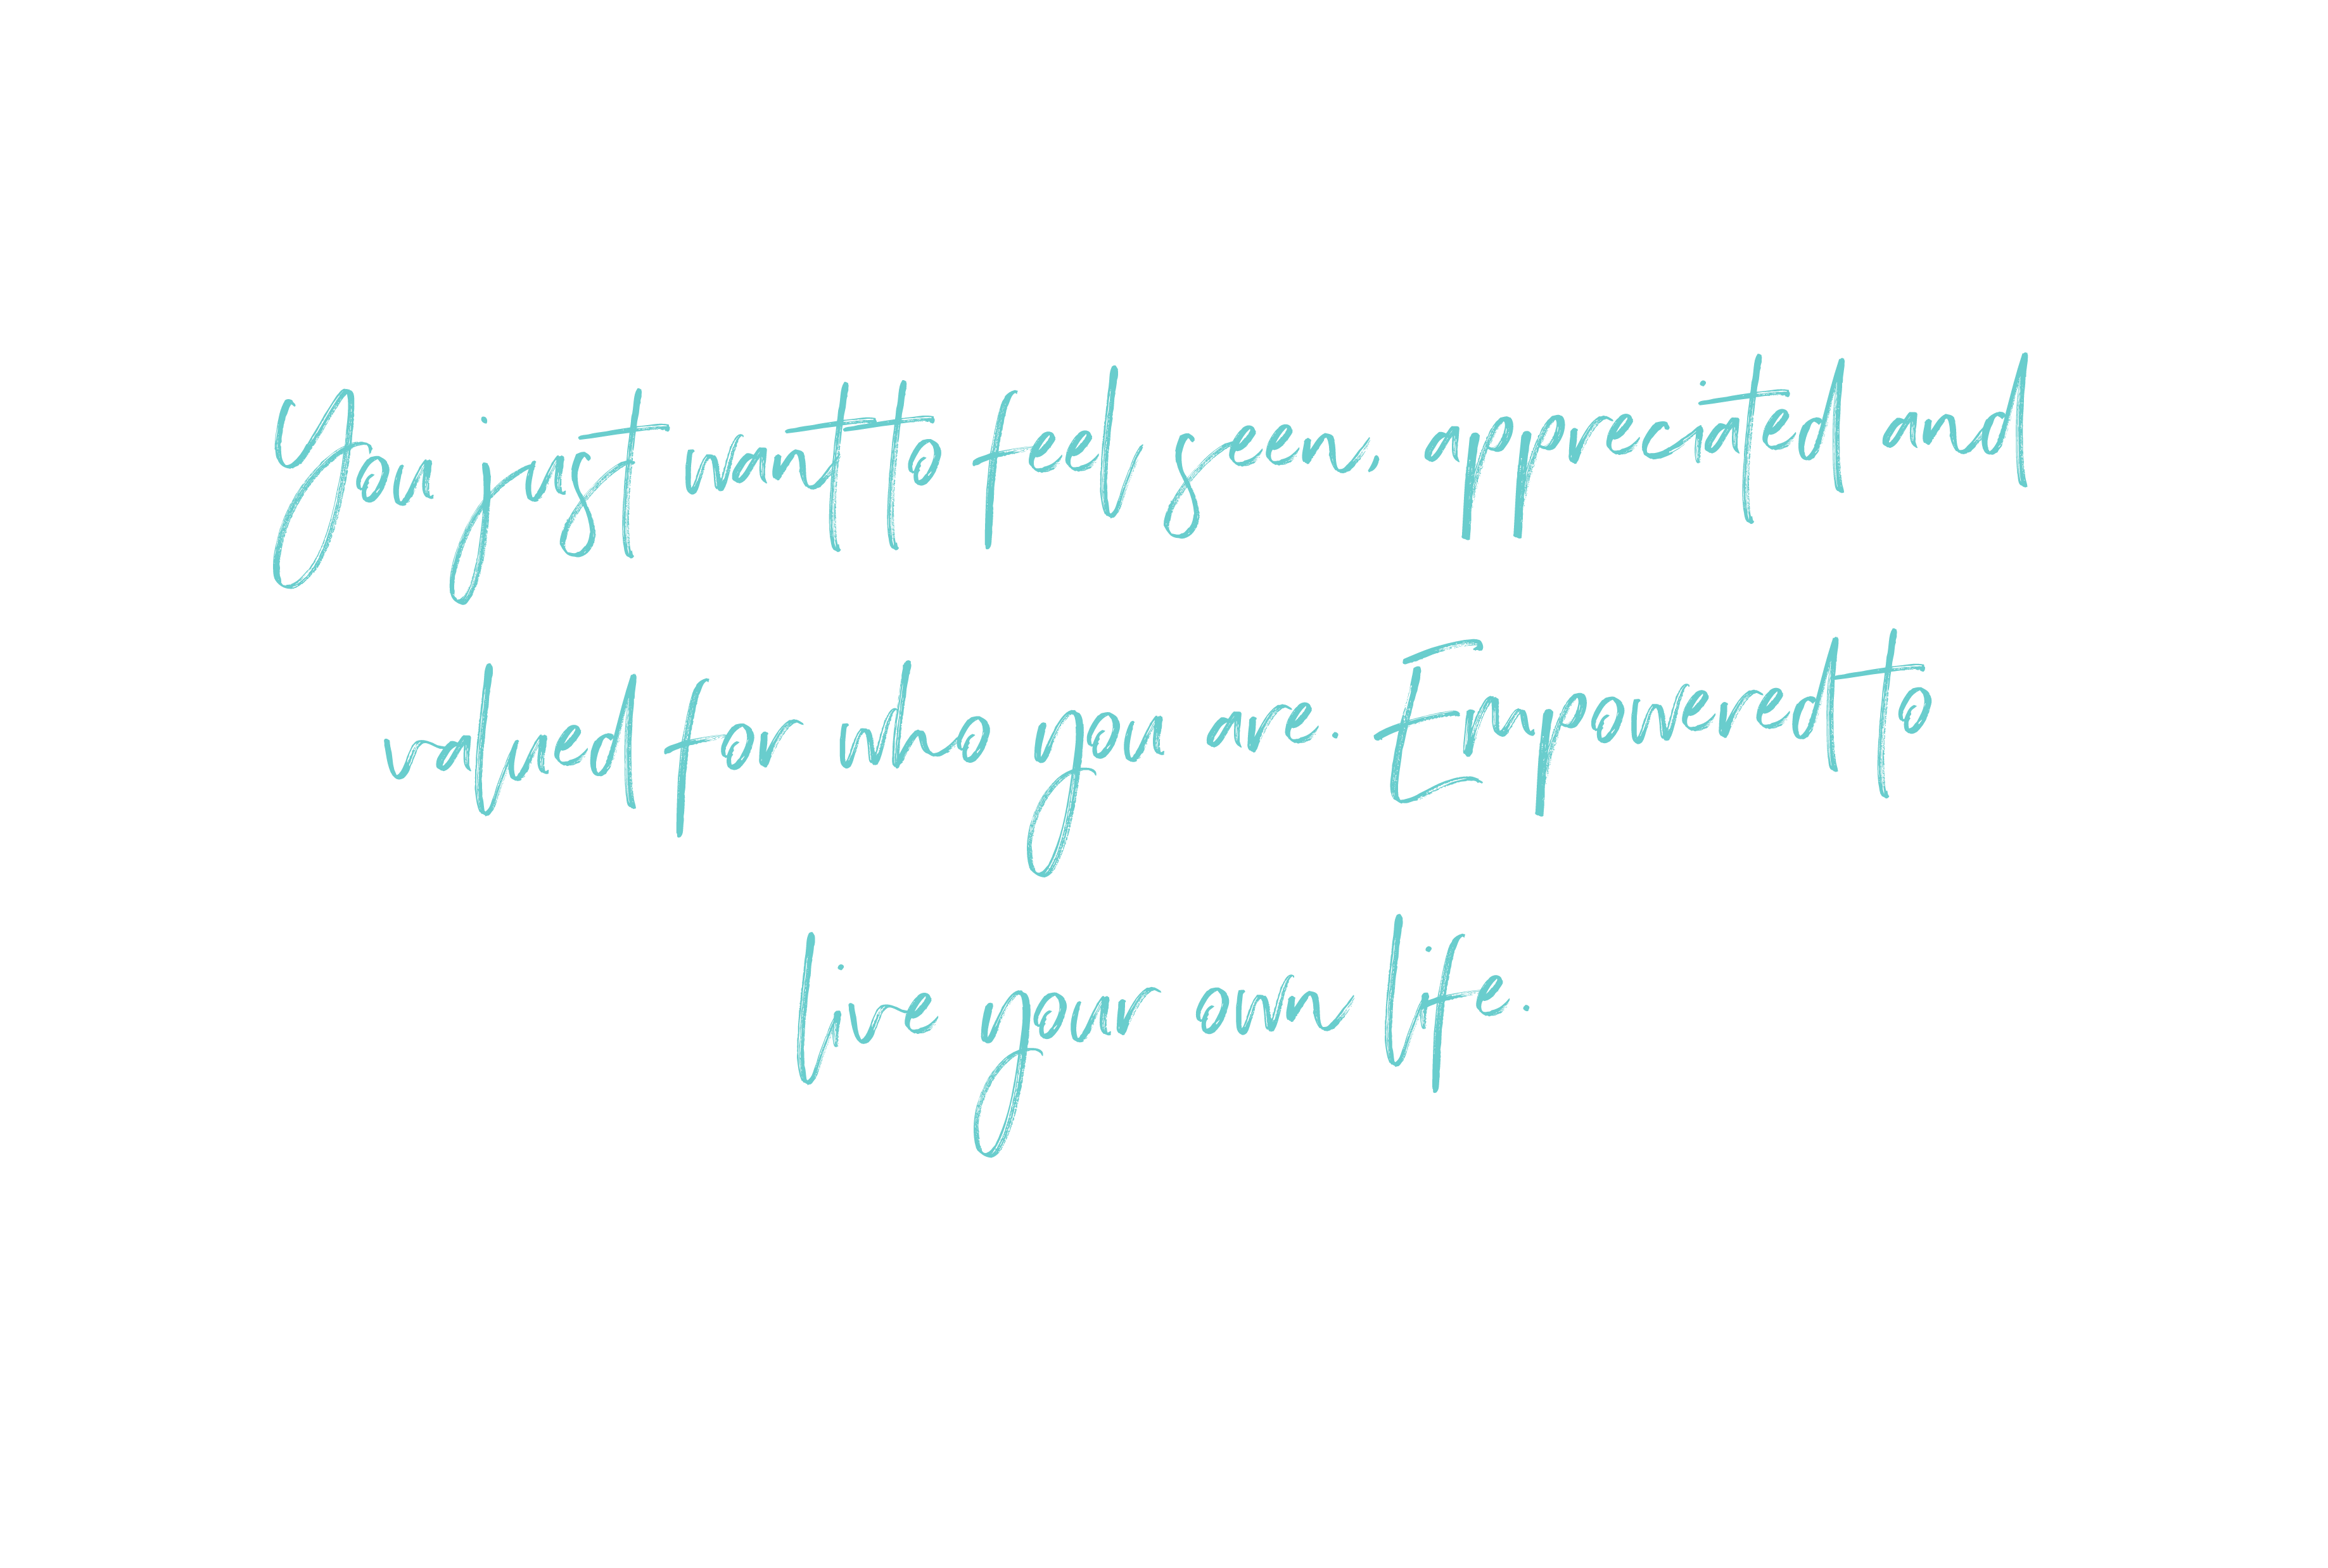 You just want to feel seen, appreciated and
valued for who you are. Empowered to
live your own life.